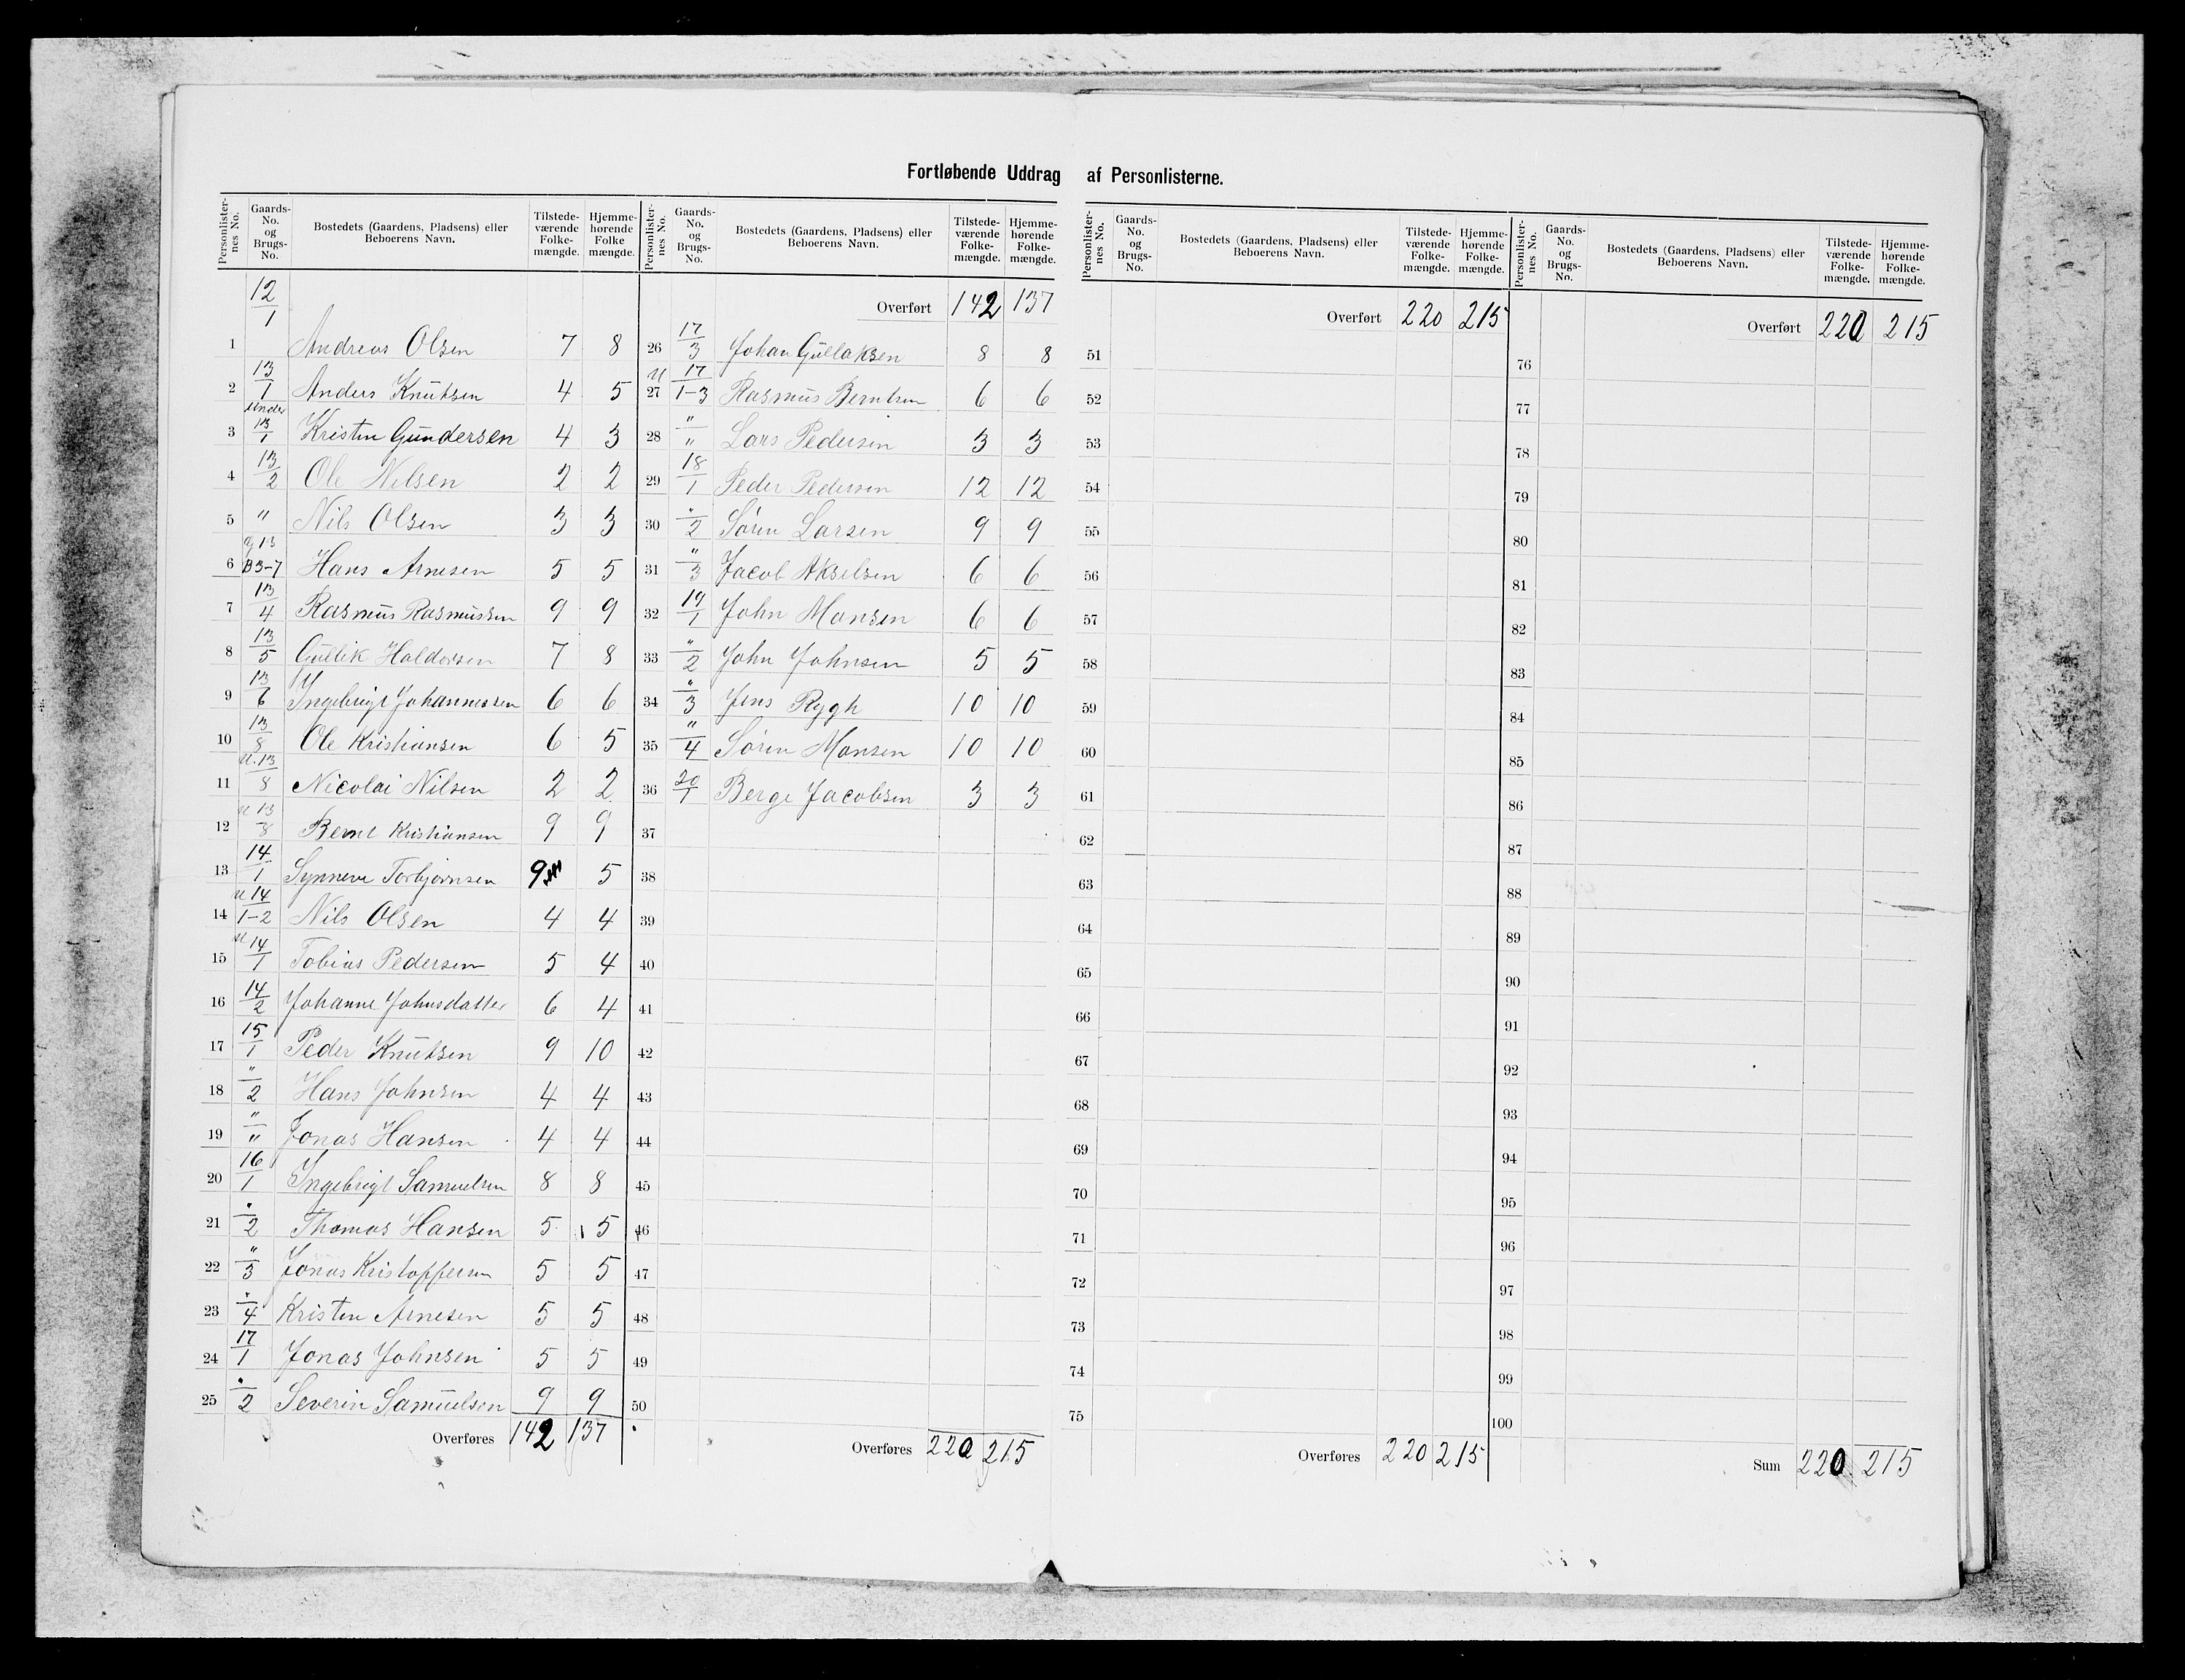 Fortløbende Uddrag af Personlisterne.
Personlister-nes No. | Gaards-No. og Brugs-No. | Bostedets (Gaardens, Pladsens) eller Beboerens Navn. | Tilstede-værende Folke-mængde. | Hjemme-hørende Folke mængde.
12/1
1 Andreas Olsen 7 8
2 13/1 Anders Knutsen 4 5
3 under 13/1 Kristen Gundersen 4 3
4 13/2 Ole Nilsen 2 2
5 " Nils Olsen 3 3
6 G 13 B 3-7 Hans Arnesen 5 5
7 13/4 Rasmus Rasmussen 9 9
8 13/5 Gullik Haldorsen 7 8
9 13/6 Ingebrigt Johannessen 6 6
10 13/8 Ole Kristiansen 6 5
11 U. 13/8 Nicolai Nilsen 2 2
12 U 13/8 Bernt Kristiansen 9 9
13 14/1 Synneve Torbjørnsen 9 5
14 U 14/1-2 Nils Olsen 4 4
15 U 14/1 Tobias Pedersen 5 4
16 14/2 Johanne Johnsdatter 6 4
17 15/1 Peder Knutsen 9 10
18 "/2 Hans Johnsen 4 4
19 "/" Jonas Hansen 4 4
20 16/1 Ingebrigt Samuelsen 8 8
21 "/2 Thomas Hansen 5 5
22 "/3 Jonas Kristoffersen 5 5
23 "/4 Kristen Arnesen 5 5
24 17/1 Jonas Johnsen 5 5
25 "/2 Severin Samuelsen 9 9
Overføres 142 137
Personlister-nes No. | Gaards-No. og Brugs-No. | Bostedets (Gaardens, Pladsens) eller Beboerens Navn. | Tilstede-værende Folke-mængde. | Hjemme-hørende Folke-mængde.
Overført 142 137
26 17/3 Johan Gullaksen 8 8
27 U 17/1-3 Rasmus Berntsen 6 6
28 "/" Lars Pedersen 3 3
29 18/1 Peder Pedersen 12 12
30 "/2 Søren Larsen 9 9
31 "/3 Jacob Akselsen 6 6
32 19/1 John Monsen 6 6
33 "/2 John Johnsen 5 5
34 "/3 Jens Rygh 10 10
35 "/4 Søren Monsen 10 10
36 20/1 Berge Jacobsen 3 3
37
38
39
40
41
42
43
44
45
46
47
48
49
50
Overføres 220 215
Personlister-nes No. | Gaards-No. og Brugs-No. | Bostedets (Gaardens, Pladsens) eller Beboerens Navn. | Tilstede-værende Folke-mængde. | Hjemme-hørende Folke-mængde.
Overført 220 215
51
52
53
54
55
56
57
58
59
60
61
62
63
64
65
66
67
68
69
70
71
72
73
74
75
Overføres 220 215
Personlister-nes No. | Gaards-No. og Brugs-No. | Bostedets (Gaardens, Pladsens) eller Beboerens Navn. | Tilstede-værende Folke-mængde. | Hjemme-hørende Folke-mængde.
Overført 220 215
76
77
78
79
80
81
82
83
84
85
86
87
88
89
90
91
92
93
94
95
96
97
98
99
100
Sum 220 215